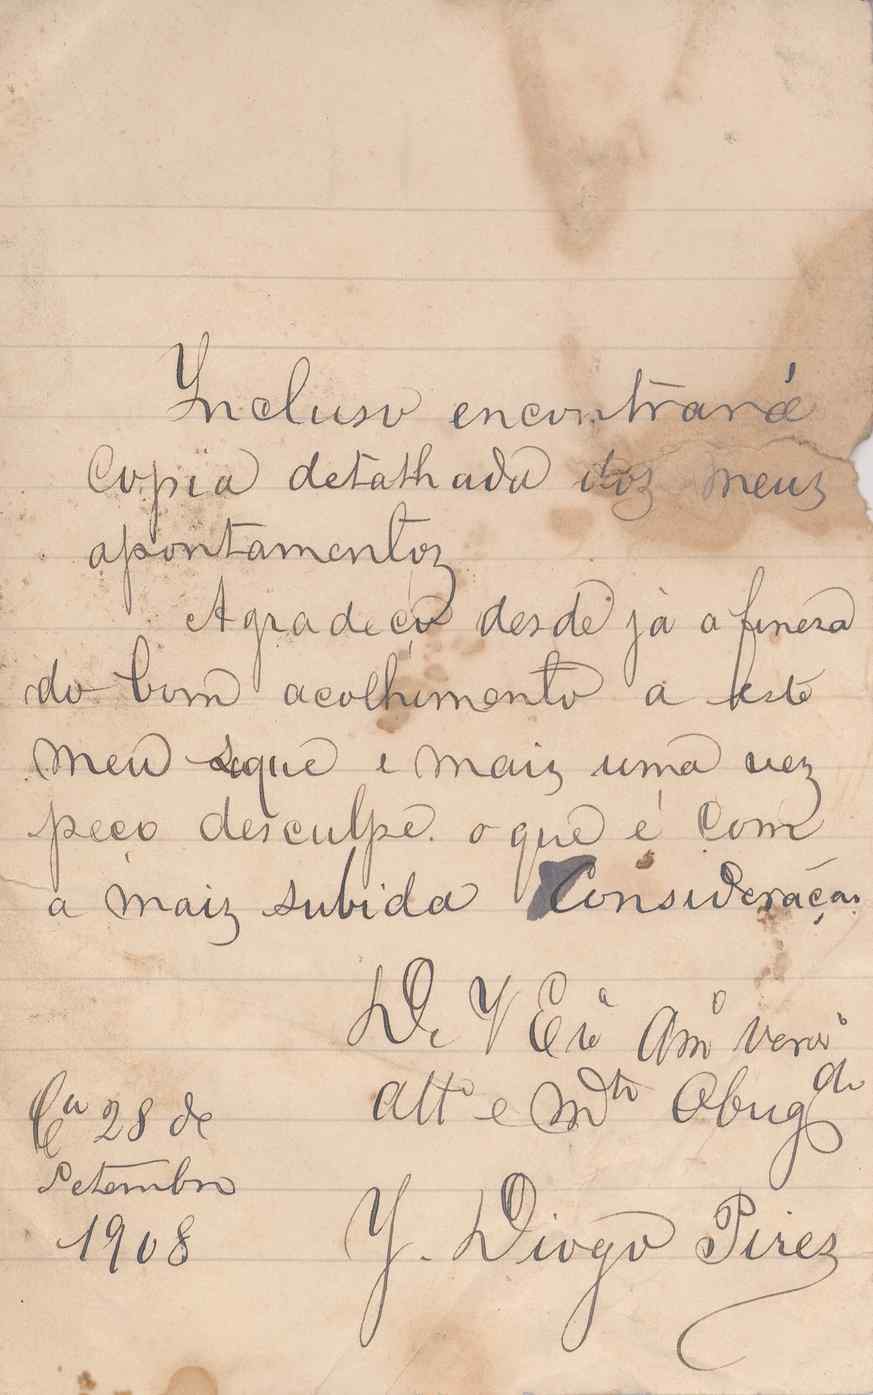 Incluso encontrará
Copia detalhada dos meus
apontamentos
Agradeço desde já a fineza
do bom acolhimento a este
meu e mais uma vez
peço desculpe. o que é Com
a mais subida Consideração
De V Exª Amº Verº
Attº e Mtº Obrigdº
Cª 28 de
Setembro
1908
J. Diogo Pires